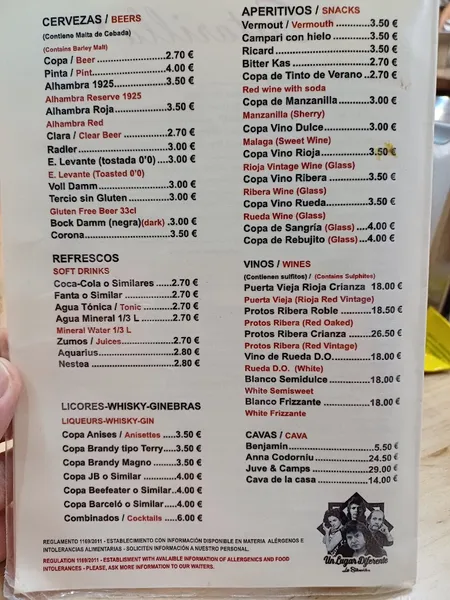 CERVEZAS / BEERS
(Contiene Malta de Cebada)
(Contains Barley Mall)
Copa / Beer ................2.70 €
Pinta / Pint..................4.00 €
Alhambra 1925..............3.50 €
Alhambra Reserve 1925
Alhambra Roja..............3.50 €
Alhambra Red
Clara / Clear Beer ..........2.70 €
Radler........................3.00 €
E. Levante (tostada 0'0) ....3.00 €
E. Levante (Toasted 0'0)
Voll Damm....................3.00 €
Tercio sin Gluten............3.00 €
Gluten Free Beer 33cl
Bock Damm (negra)(dark) .3.00 €
Corona.......................3.50 €
REFRESCOS
SOFT DRINKS
Coca-Cola o Similares ......2.70 €
Fanta o Similar ..............2.70 €
Agua Tónica / Tonic ........2.70 €
Agua Mineral 1/3 L ..........2.70 €
Mineral Water 1/3 L
Zumos / Juices...............2.70 €
Aquarius.....................2.80 €
Nestea .......................2.80 €
LICORES-WHISKY-GINEBRAS
LIQUEURS-WHISKY-GIN
Copa Anises / Anisettes ....3.50 €
Copa Brandy tipo Terry....3.50 €
Copa Brandy Magno ........3.50 €
Copa JB o Similar ..........4.00 €
Copa Beefeater o Similar..4.00 €
Copa Barceló o Similar....4.00 €
Combinados / Cocktails ....6.00 €
APERITIVOS / SNACKS
Vermout / Vermouth ........3.50 €
Campari con hielo ..........3.50 €
Ricard........................3.50 €
Bitter Kas ....................2.70 €
Copa de Tinto de Verano ..2.70 €
Red wine with soda
Copa de Manzanilla..........3.00 €
Manzanilla (Sherry)
Copa Vino Dulce..............3.00 €
Malaga (Sweet Wine)
Copa Vino Rioja..............3.50 €
Rioja Vintage Wine (Glass)
Copa Vino Ribera ............3.50 €
Ribera Wine (Glass)
Copa Vino Rueda..............3.50 €
Rueda Wine (Glass)
Copa de Sangría (Glass) ....4.00 €
Copa de Rebujito (Glass)....4.00 €
VINOS / WINES
(Contienen sulfitos) / (Contains Sulphites)
Puerta Vieja Rioja Crianza 18.00 €
Puerta Vieja (Rioja Red Vintage)
Protos Ribera Roble ........18.50 €
Protos Ribera (Red Oaked)
Protos Ribera Crianza ......26.50 €
Protos Ribera (Red Vintage)
Vino de Rueda D.O...........18.00 €
Rueda D.O. (White)
Blanco Semidulce ............18.00 €
White Semisweet
Blanco Frizzante ............18.00 €
White Frizzante
CAVAS / CAVA
Benjamin.....................5.50 €
Anna Codorniu................24.50 €
Juve & Camps ................29.00 €
Cava de la casa ..............14.00 €
Un Lugar Diferente
REGLAMENTO 1169/2011 - ESTABLECIMIENTO CON INFORMACIÓN DISPONIBLE EN MATERIA ALÉRGENOS E
INTOLERANCIAS ALIMENTARIAS - SOLICITEN INFORMACIÓN A NUESTRO PERSONAL.
REGULATION 1169/2011 - ESTABLISMENT WITH AVAILABLE INFORMATION OF ALLERGENICS AND FOOD
INTOLERANCES - PLEASE, ASK MORE INFORMATION TO OUR WAITERS.